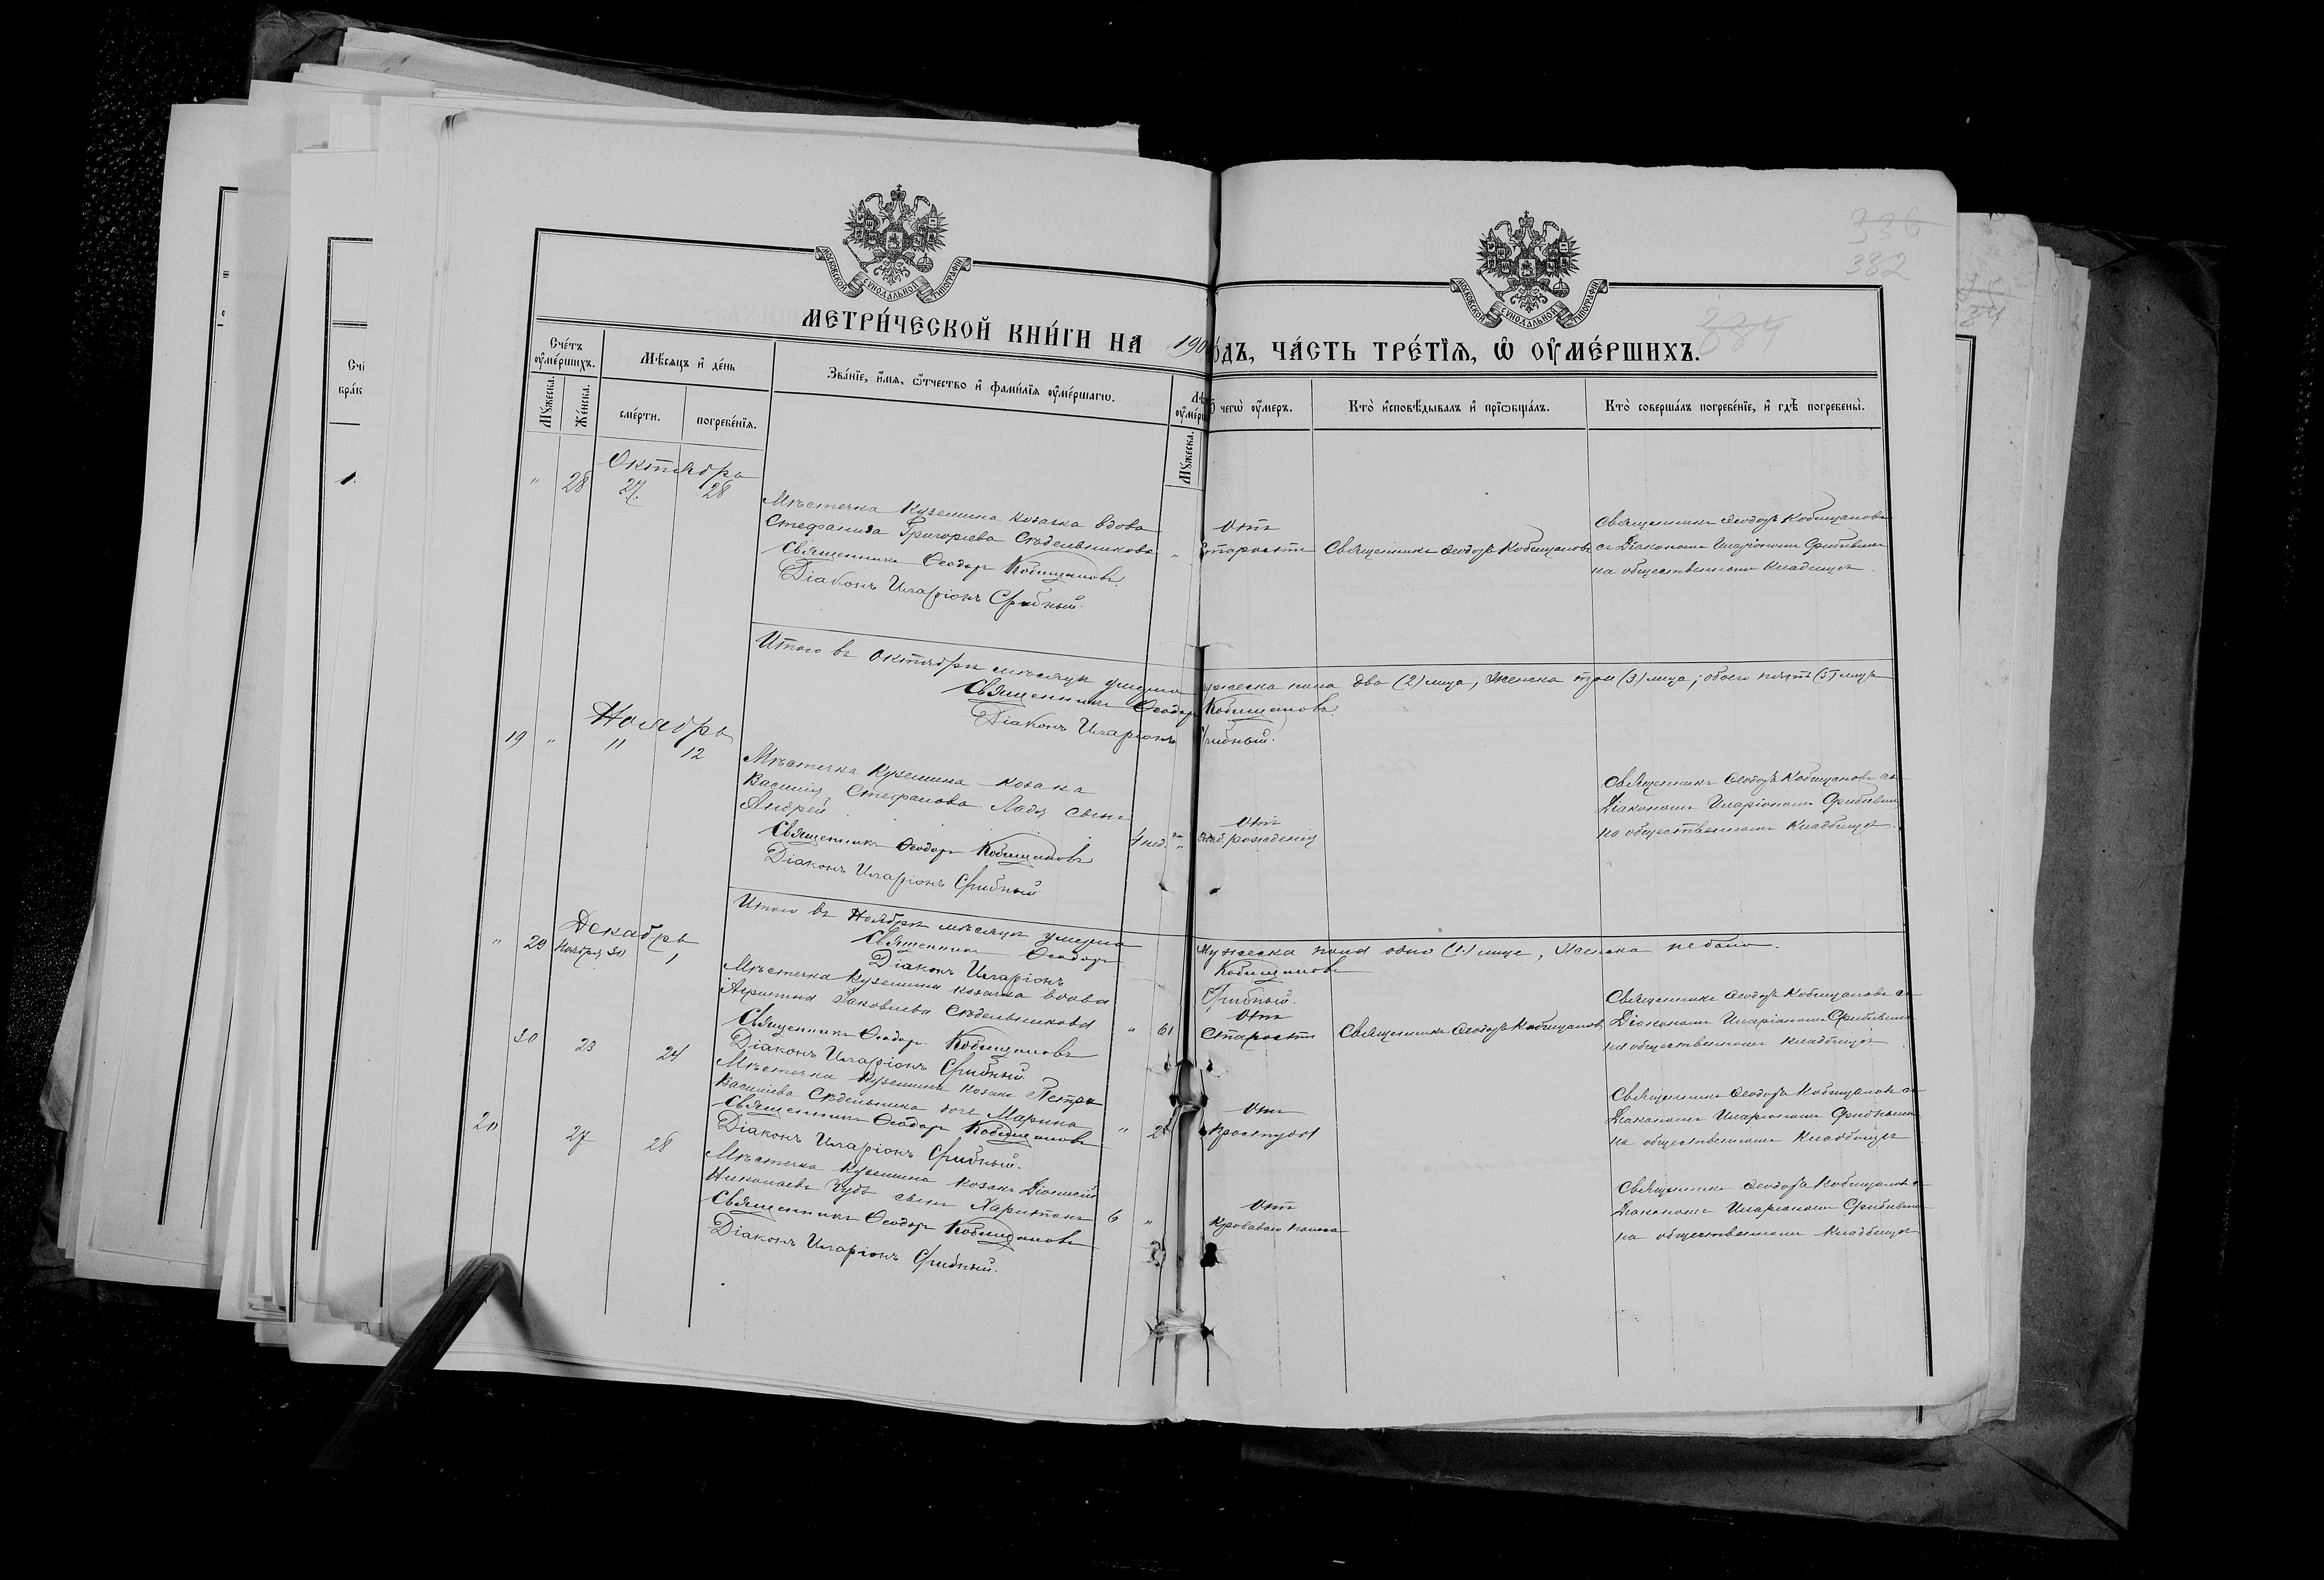 МОСКОВСКОЙ СѴНОДАЛЬНОЙ ТИПОГРАФІИ
МОСКОВСКОЙ СѴНОДАЛЬНОЙ ТИПОГРАФІИ
336
332
334
МЕТРИ́ЧЕСКОЙ КНИ́ГИ НА 190
ОДЪ, ЧА́СТЬ ТРЕ́ТЇѦ, Ѡ҆ ОУ҆МЕ́РШИХЪ.
Сче́тъ оу҆ме́ршихъ.
Мꙋ́жеска.
Же́нска.
Мѣ́сяцъ и҆ де́нь
сме́рти.
погребе́нїѧ.
Зва́нїе, и҆́мѧ, ѻ҆́тчество и҆ фами́лїѧ оу҆ме́ршагѡ.
Мꙋ́жеска.
чегѡ̀ оу҆́меръ.
Кто̀ и҆сповѣ́дывалъ и҆ прїѡбща́лъ.
Кто̀ соверша́лъ погребе́нїе, и҆ гдѣ̀ погребены̀.
Октябрь
" 28 27 28
Мѣстечка Куземина козачка вдова
Стефанида Григоріева Сѣдельникова
Священникъ Ѳеодоръ Кобищановъ
Діаконъ Иларіонъ Срибный.
"
Отъ
старости
Священникъ Ѳеодоръ Кобищановъ
Священникъ Ѳеодоръ Кобищановъ
съ Діакономъ Иларіономъ Срибнымъ
на общественномъ кладбищѣ
Итого въ Октябрѣ мѣсяцѣ умерло мужеска пола два (2) лица, женска три (3) лица; обоего пять (5) лицъ
Священникъ Ѳеодоръ Кобищановъ
Діаконъ Иларіонъ Срибный.
Ноябрь
19 " 11 12
Мѣстечка Куземина козака
Василія Стефанова Лади сынъ
Андрей
Священникъ Ѳеодоръ Кобищановъ
Діаконъ Иларіонъ Срибный.
4 нед. "
Отъ
слаб. рожденія
Священникъ Ѳеодоръ Кобищановъ съ
Діакономъ Иларіономъ Срибнымъ
на общественномъ кладбищѣ.
Итого въ Ноябрѣ мѣсяцѣ умерло мужеска пола одно (1) лице, женска небыло.
Священникъ Ѳеодоръ Кобищановъ
Діаконъ Иларіонъ Срибный.
Декабрь
" 29 Ноября 30 1
Мѣстечка Куземина козачка вдова
Іаковлева Сѣдельникова
Священникъ Ѳеодоръ Кобищановъ
Діаконъ Иларіонъ Срибный
" 61
Отъ
старости
Священникъ Ѳеодоръ Кобищановъ
Священникъ Ѳеодоръ Кобищановъ съ
Діакономъ Иларіономъ Срибнымъ
на общественномъ кладбищѣ
30 23 24
Мѣстечка Куземина козака Петра
Василіева Сѣдельника дочь Марина
Священникъ Ѳеодоръ Кобищановъ
Діаконъ Иларіонъ Срибный.
"
Отъ
простуды
Священникъ Ѳеодоръ Кобищановъ съ
Діакономъ Иларіономъ Срибнымъ
на общественномъ кладбищѣ
20 27 28
Мѣстечка Куземина козака Діонисія
Николаева сынъ Харитонъ
Священникъ Ѳеодоръ Кобищановъ
Діаконъ Иларіонъ Срибный.
6 "
Отъ
кроваваго поноса
Священникъ Ѳеодоръ Кобищановъ съ
Діакономъ Иларіономъ Срибнымъ
на общественномъ кладбищѣ